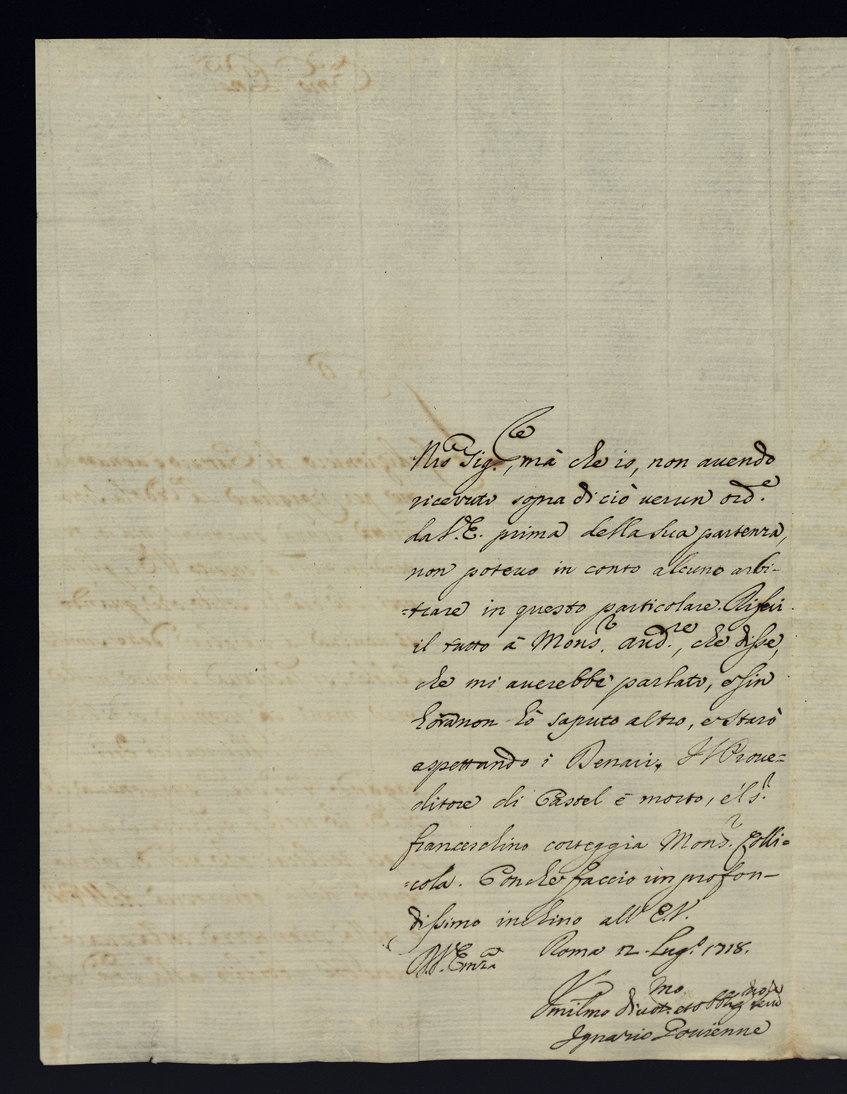 Nro Sig.re, mà che io, non avendo
ricevuto sopra di ciò verun ord.e
da V.E. prima della sua partenza,
non potevo in conto alcuno arbi-
=trare in questo particolare. Riferi
il tutto à Mons.r Aud.re, che disse,
che mi averebbe parlato, e sin
hora non hò saputo altro, e starò
aspettando i Denari. Il Prove=
ditore di Castel è morto, e'l S.r
Franceschino corteggia Mons.r Colli=
=cola. Con che faccio un profon-
dissimo inchino all' E.V.
Roma 12 Lug.o 1718.
Umilmo divot. et obblig.mo
Ignazio